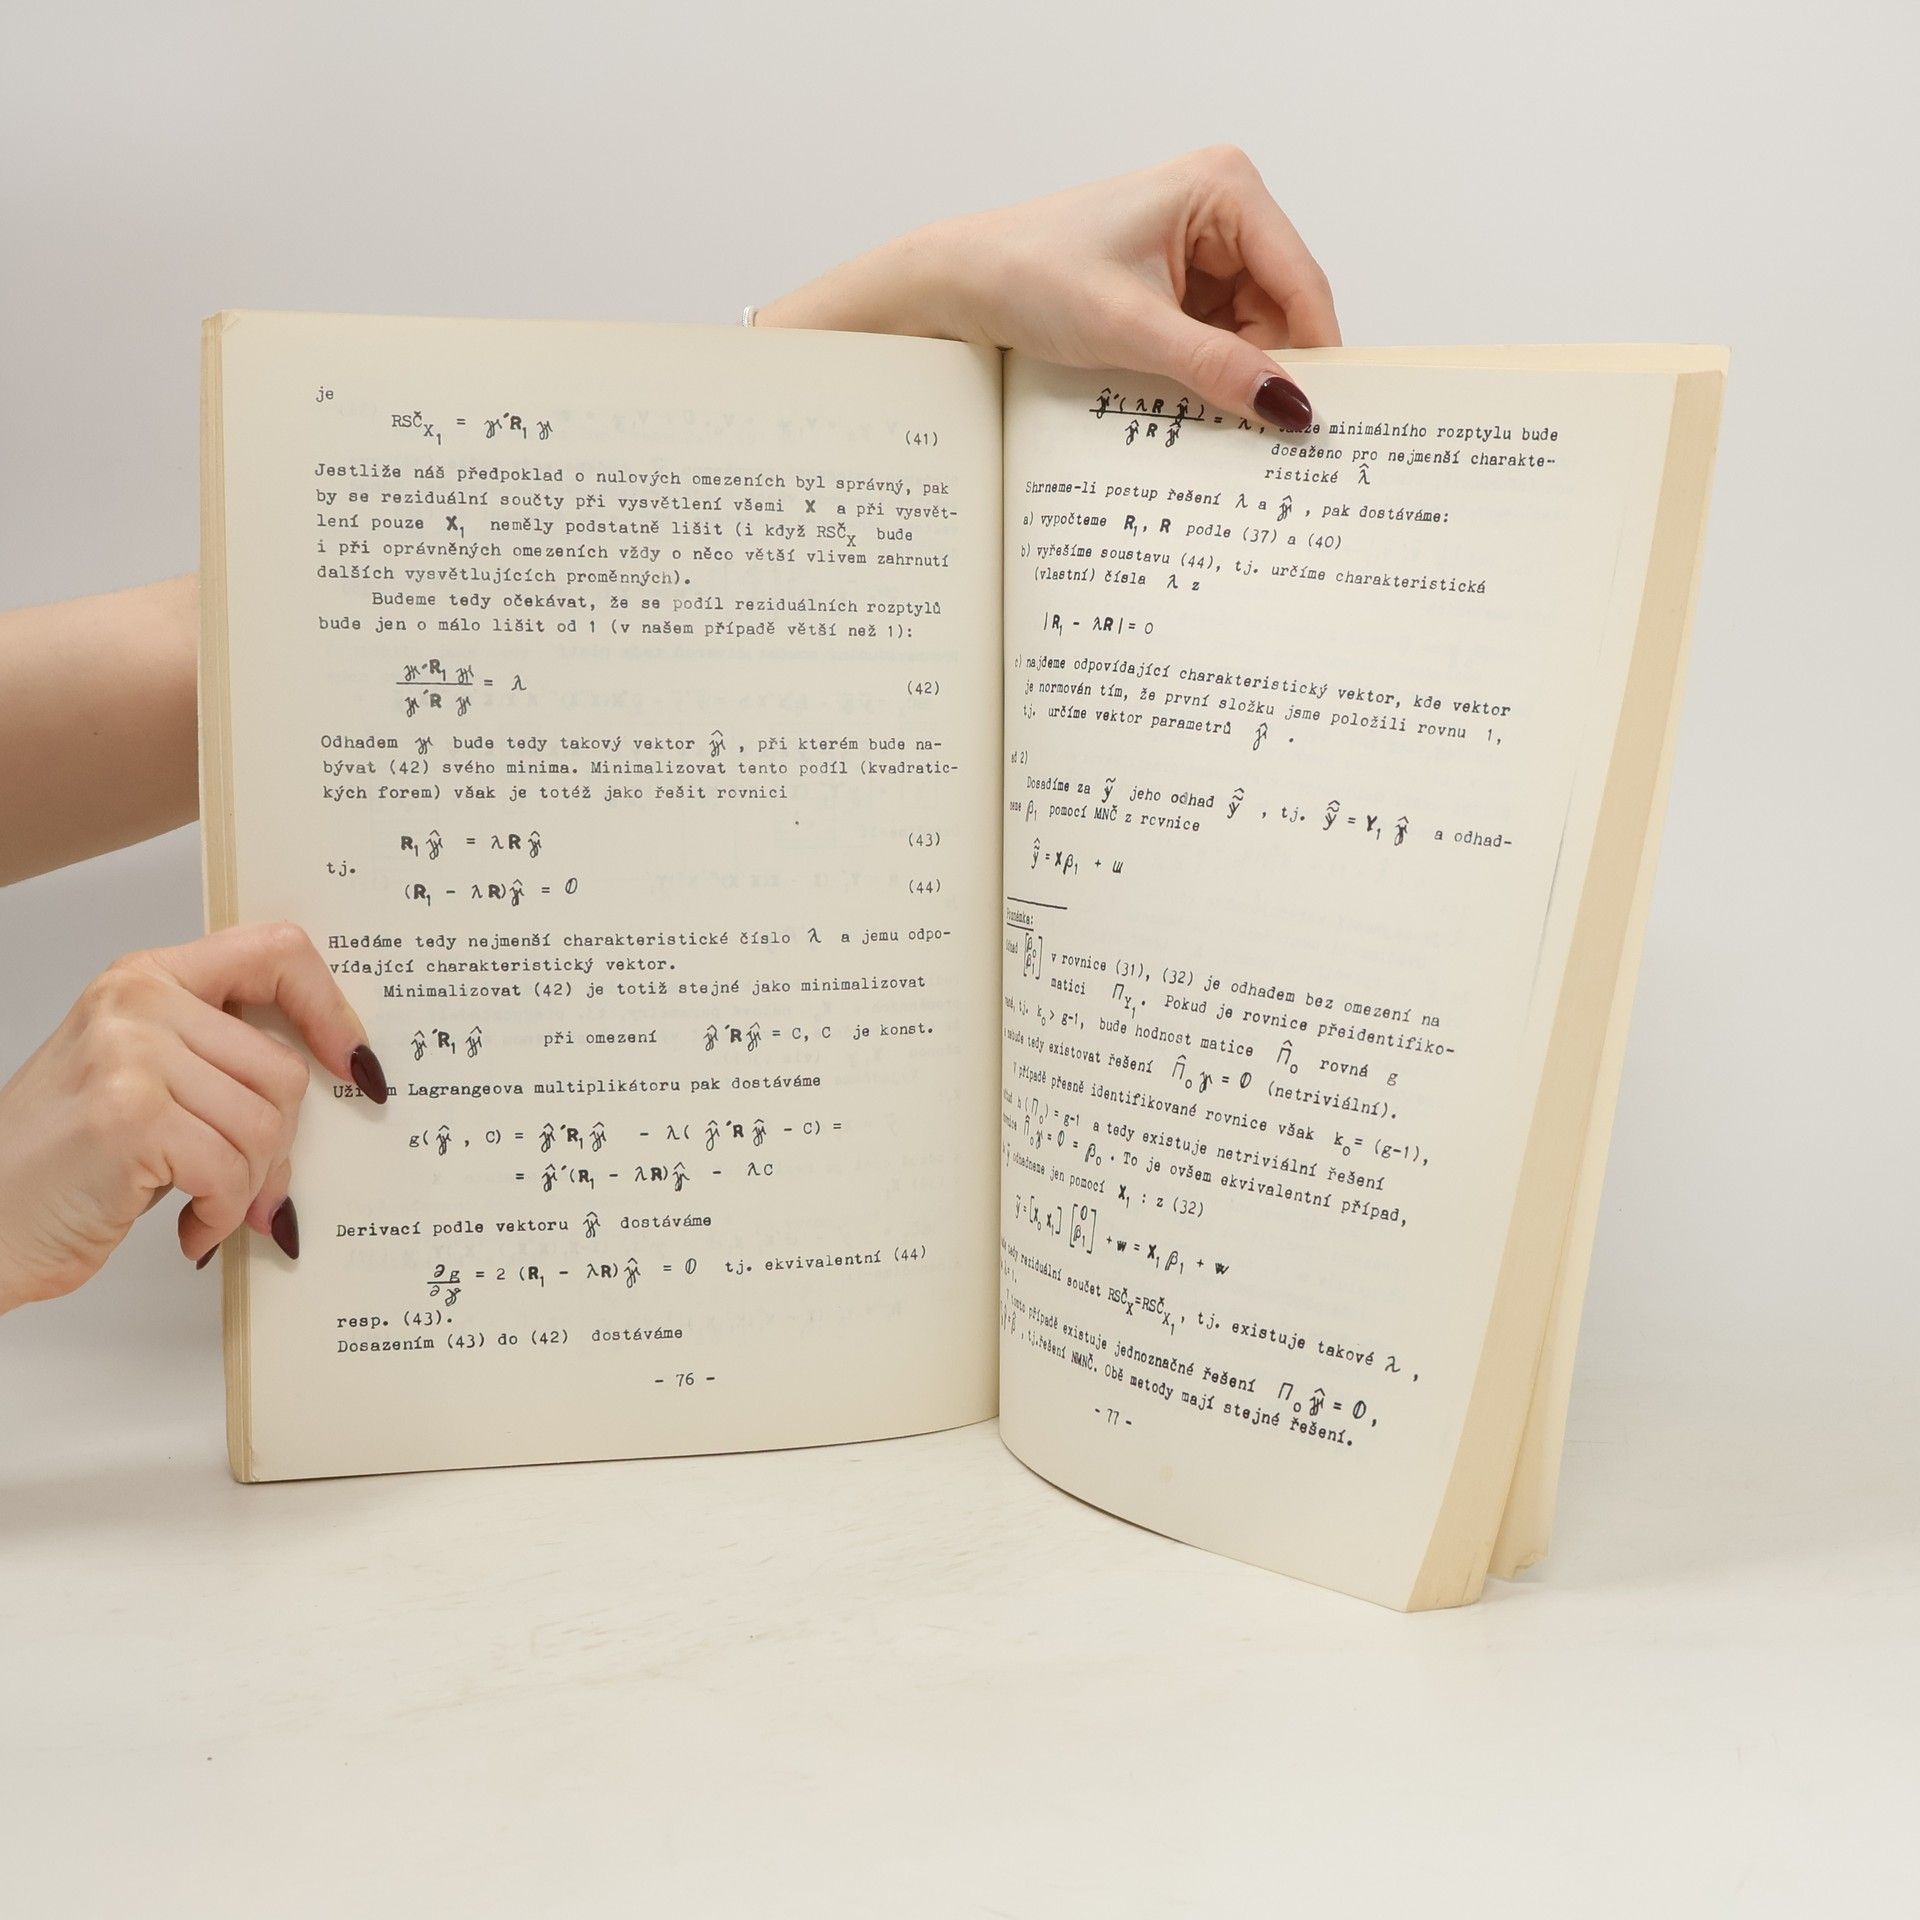 je
RSČ_X₁ = γ′R₁ γ (41)
Jestliže náš předpoklad o nulových omezeních byl správný, pak
by se reziduální součty při vysvětlení všemi X a při vysvět-
lení pouze X₁ neměly podstatně lišit (i když RSČ_X bude
i při oprávněných omezeních vždy o něco větší vlivem zahrnutí
dalších vysvětlujících proměnných).
Budeme tedy očekávat, že se podíl reziduálních rozptylů
bude jen o málo lišit od 1 (v našem případě větší než 1):
γ′R₁ γ / γ′R γ = λ (42)
Odhadem γ bude tedy takový vektor γ̂ , při kterém bude na-
bývat (42) svého minima. Minimalizovat tento podíl (kvadratic-
kých forem) však je totéž jako řešit rovnici
R₁ γ̂ = λ R γ̂ (43)
tj.
(R₁ - λR)γ̂ = 0 (44)
Hledáme tedy nejmenší charakteristické číslo λ a jemu odpo-
vídající charakteristický vektor.
Minimalizovat (42) je totiž stejné jako minimalizovat
γ̂′R₁ γ̂ při omezení γ̂′R γ̂ = C, C je konst.
Lagrangeova multiplikátoru pak dostáváme
g(γ̂ , C) = γ̂′R₁ γ̂ - λ( γ̂′R γ̂ - C) =
= γ̂′(R₁ - λR)γ̂ - λC
Derivací podle vektoru γ̂ dostáváme
∂g / ∂γ̂ = 2 (R₁ - λR)γ̂ = 0 tj. ekvivalentní (44)
resp. (43).
Dosazením (43) do (42) dostáváme
- 76 -
γ̂′( λR γ̂ ) / γ̂ R γ̂ = λ , minimálního rozptylu bude
dosaženo pro nejmenší charakte-
ristické λ̂
Shrneme-li postup řešení λ a γ̂ , pak dostáváme:
a) vypočteme R₁, R podle (37) a (40)
b) vyřešíme soustavu (44), tj. určíme charakteristická
(vlastní) čísla λ z
|R₁ - λR| = 0
c) najdeme odpovídající charakteristický vektor, kde vektor
je normován tím, že první složku jsme položili rovnu 1,
tj. určíme vektor parametrů γ̂ .
ad 2)
Dosadíme za ỹ jeho odhad ỹ̂ , tj. ỹ̂ = Y₁ γ̂ a odhad-
neme β₁ pomocí MNČ z rovnice
ỹ̂ = Xβ₁ + u
Poznámka:
Odhad [β₀ β₁] v rovnice (31), (32) je odhadem bez omezení na
matici Π_Y₁. Pokud je rovnice přeidentifiko-
vaná, tj. k₀ > g-1, bude hodnost matice Π̂₀ rovná g
a nebude tedy existovat řešení Π̂₀ γ = 0 (netriviální).
V případě přesně identifikované rovnice však k₀ = (g-1),
h(Π₀) = g-1 a tedy existuje netriviální řešení
Π̂₀γ = 0 = β₀. To je ovšem ekvivalentní případ,
odhadneme jen pomocí X₁ : z (32)
ỹ = [X₀ X₁] [0 β₁] + w = X₁ β₁ + w
tedy reziduální součet RSČ_X=RSČ_X₁, tj. existuje takové λ ,
V tomto případě existuje jednoznačné řešení Π₀ γ̂ = 0,
tj. řešení NMNČ. Obě metody mají stejné řešení.
- 77 -